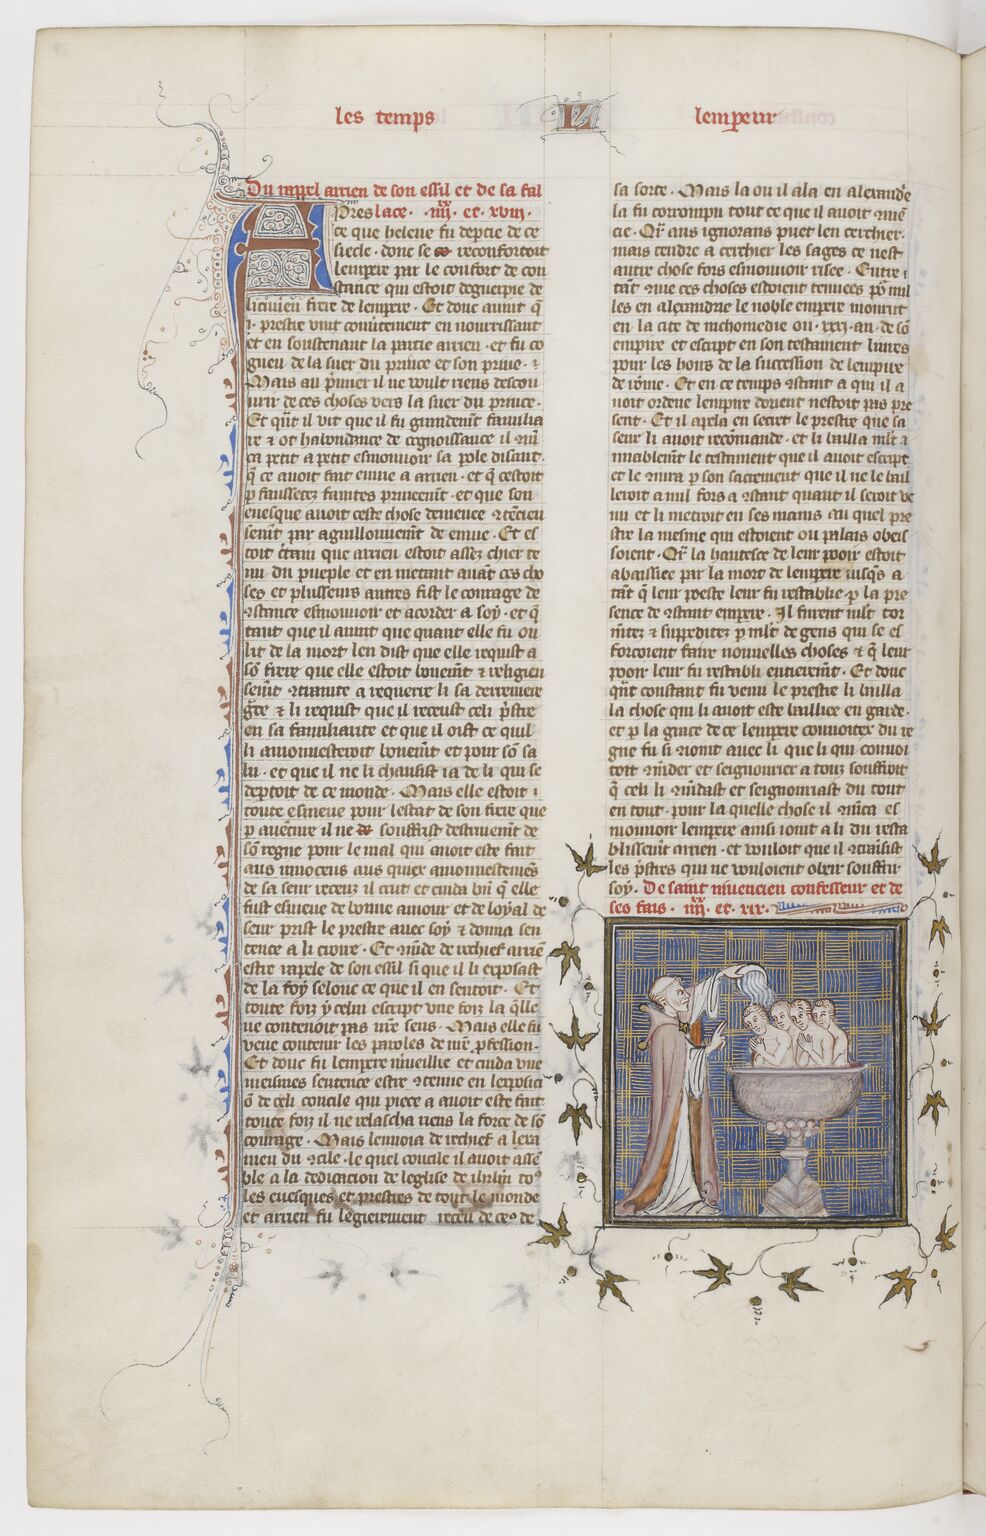 les temps
lempereur
Du rappel arrien de son essil et de sa fal
lace · iiii · et · xviii ·
Apres
ce que helene fu deptie de ce
siecle · donc se reconfortoit
lempire par le confort de con
stance qui estoit deguerpie de
licinien frere de lempire · Et donc avint q̄
i · prestre vint en nourrissant
et en soustenant la partie arrien · et fu co
gneu de la suer du prince et son prive · ⁊
Mais au p̄mier il ne voult riens descou
vrir de ces choses vers la suer du prince ·
Et qn̄t il vit que il fu grandemēt familia
re ⁊ ot habondance de cognoissance il
petit a petit esmouvoir sa pole disant ·
q̄ ce avoit fait envie a arrien · et q̄ cestoit
p faussetez faintes · et que son
evesque avoit ceste chose demenee
semt par aguillonnemt de envie · Et es
toit que arrien estoit assez chier te
nu du pueple et en metant avāt ces cho
ses et plusseurs autres fist le courage de
9stance esmouvoir et acorder a soy · et q̄
tant que il avint que quant elle fu ou
lit de la mort len dist que elle requist a
sō frere que elle estoit bonemt ⁊ religieu
semt a requerre li sa derreniere
gce ⁊ li requist que il receust celi p̄stre
en sa familiarite et que il oist ce quil
li amonnesteroit bonemt et pour sō sa
lu · et que il ne li chausist ia de li qui se
deptoit de ce monde · Mais elle estoit ·
toute esmeue pour lestat de son frere que
p aventure il ne souffrist destruiemt de
sō regne pour le mal qui avoit este fait
aus innocens aus quiex amonnestemēs
de sa seur receuz il crut et cuida bn̄ q̄ elle
fust esmeue de bonne amour et de loyal de
seur prist le prestre avec soy ⁊ donna sen
tence a li croire · Et mde de rechief arriē
estre rapele de son essil si que il li exposast
de la foy selonc ce que il en sentoit · Et
toute foiz y celui escript une foiz la qlle
ne contenoit pas nr̄e sens · Mais elle fu
veue contenir les paroles de nr̄e pfession ·
Et donc fu lempere mveillie et cuida une
meismes sentence estre 9tenue en lexposici
ō de celi concile qui piece a avoit este fait
toute foiz il ne relascha riens la force de sō
courage · Mais lenvoia de rechief a lexa
men du 9cile · le quel concile il avoit assē
ble a la dedicacion de leglise de ihrlm to⁹
les evesques et prestres de tout le monde
et arrien fu legierement receu de ce⁹ de
sa sorte · Mais la ou il ala en alexandre
la fu corrompu tout ce que il avoit 9mē
cie · Qr̄ aus ignorans puet len cerchier ·
mais tendre a cerchier les sages ce nest
autre chose fors esmouvoir risee · Entre
tāt 9me ces choses estoient tenues
les en alexandre le noble empere mourut
en la cite de nichomedie ou · xxxi · an · de sō
empire et escript en son testament livres
pour les hoirs de la succession de lempire
de rōme · Et en ce temps 9stant a qui il a
voit ordene lempire dorient nestoit pas pre
sent · Et il apela en secret le prestre que sa
seur li avoit recōmande · et li bailla mlt a
miablemt le testament que il avoit escript
et le p son sacrement que il ne le bail
leroit a nul fors a 9stant quant il seroit ve
nu et li metroit en ses mains au quel pre
stre la mesme qui estoient ou palais obeis
soient · Qr̄ la hautesce de leur pooir estoit
abaissiee par la mort de lempere iusqs a
tāt q̄ leur poeste leur fu restablie p la pre
sence de 9stant empere · Il furent mlt tor
mētez ⁊ suppeditez p mlt de gens qui se es
forcoient faire nouvelles choses ⁊ q̄ leur
pooir leur fu restabli entieremt · Et donc
qnt constant fu venu le prestre li bailla
la chose qui li avoit este baillice en garde ·
et p la grace de ce lempere convoitex du re
gne fu si avec li que li qui convoi
toit mder et seignourier a touz souffroit
q̄ celi li mdast et seignouriast du tout
en tout · pour la quelle chose il es
mouvoir lempere ainsi ioint a li du resta
blissemt arrien · et vouloit que il
les p̄stres qui ne vouloient obeir souffrir
soy · De saint iuvencien confesseur et de
ses fais · iiii · et · xix ·